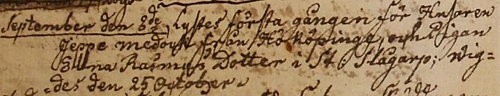 September den 8de lystes första gången för Husaren
Jeppe från Hököpinge, och Pigan
Rasmus Dotter i St. Slågarp; Wig-
des den 25 October.